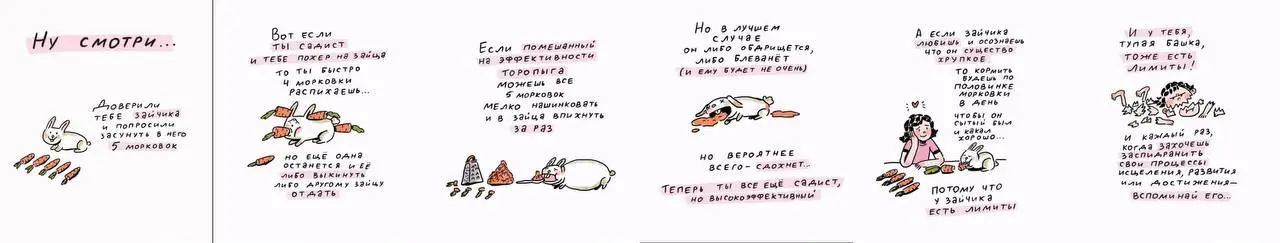 Ну смотри...
Доверили
тебе зайчика
и попросили
засунуть в него
5 морковок
Вот если
ты садист
и тебе похер на зайца
то ты быстро
4 морковки
распихаешь...
но ещё одна
останется и её
либо выкинуть
либо другому зайцу
отдать
Если помешанный
на эффективности
торопыга
можешь все
5 морковок
мелко нашинковать
и в зайца впихнуть
за раз
Но в лучшем
случае
он либо обдрищется,
либо блеванёт
(и ему будет не очень)
но вероятнее
всего- сдохнет...
Теперь ты все ещё садист,
но высокоэффективный
А если зайчика
любишь и осознаешь
что он существо
хрупкое
то кормить
будешь по
половинке
морковки
в день
чтобы он
сытый был
и какал
хорошо...
потому что
у зайчика
есть лимиты
И у тебя,
тупая башка,
тоже есть
лимиты!
и каждый раз,
когда захочешь
заспидранить
свои процессы
исцеления, развития
или достижения—
вспоминай его...